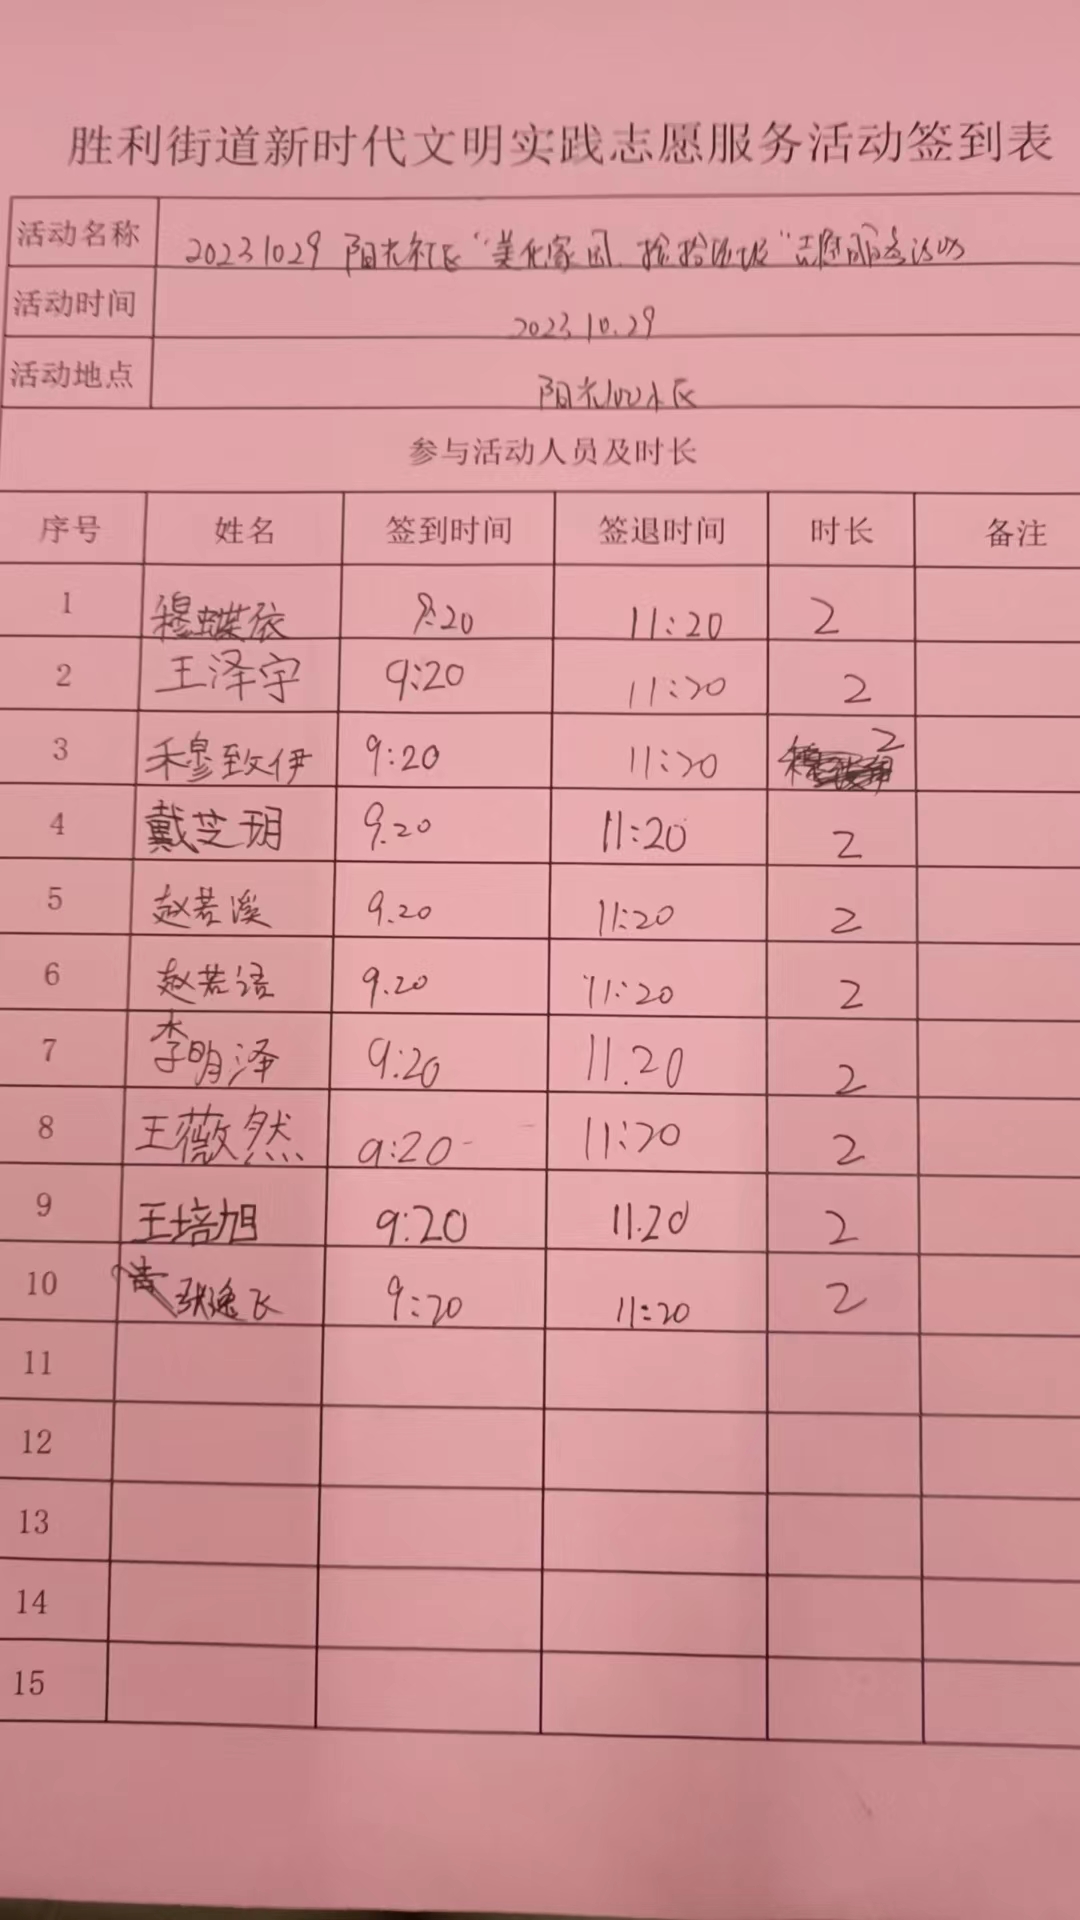 胜利街道新时代文明实践志愿服务活动签到表
活动名称 20231029 阳光社区“美化家园、捡拾垃圾”志愿服务活动
活动时间 2023.10.29
活动地点 阳光100小区
参与活动人员及时长
序号 姓名 签到时间 签退时间 时长 备注
1 穆蝶依 9:20 11:20 2
2 王泽宇 9:20 11:20 2
3 穆致伊 9:20 11:20 2
4 戴芝玥 9.20 11:20 2
5 赵若溪 9.20 11:20 2
6 赵若语 9.20 11:20 2
7 李明泽 9:20 11.20 2
8 王薇然 9:20 11:20 2
9 王培旭 9:20 11.20 2
10 张逸飞 9:20 11:20 2
11
12
13
14
15